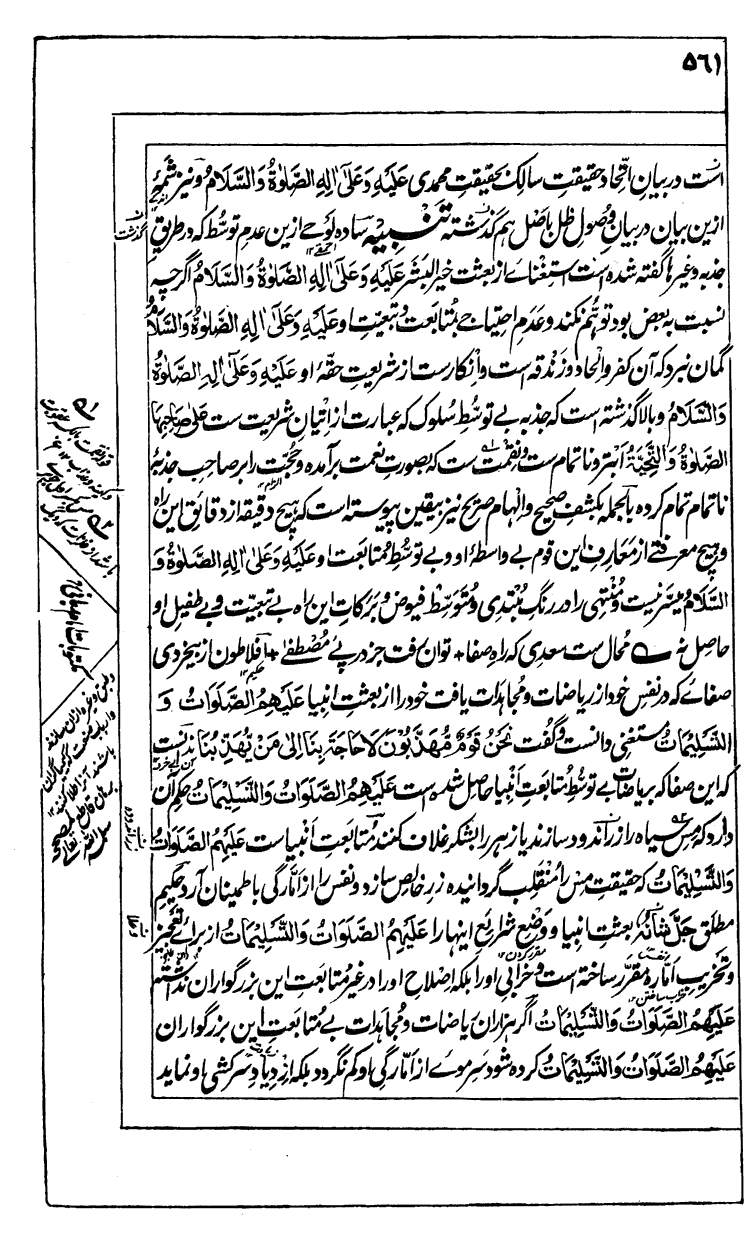 ٥٦١
است در بیان اتّحاد حقیقتِ سالک بحقیقتِ محمدی عَلَیهِ وَعَلیٰ اٰلِهِ الصَّلوٰةُ وَالسَّلَامُ ونیز شمهٔ
ازین بیان در بیانِ وصولِ ظل باصل هم گذشته تنبیه ساده لوحے ازین عدمِ توسُّط که در طریق
جذبه وغیرها گفته شده است استغنائے از بعثت خیر البشر عَلَیهِ وَعَلیٰ اٰلِهِ الصَّلَاةُ وَالسَّلَامُ اگرچه
نسبت به بعض بود توهُّم نکند وعَدَمِ احتیاج بمُتابعت وتبعیتِ او عَلَیهِ وَعَلیٰ اٰلِهِ الصَّلوٰةُ وَالسَّلَامُ
گمان نبرد که آن کفر والحاد وزَندقه است واِنکار ست از شریعتِ حقّهٔ او عَلَیهِ وَعَلیٰ اٰلِهِ الصَّلوٰةُ
وَالسَّلَامُ وبالا گذشته است که جذبه بے توسُّطِ سُلوک که عبارت از اتیانِ شریعت ست عَلیٰ صَاحِبِهَا
الصَّلوٰةُ وَالتَّحِیَّةُ اَبتر وناتمام ست ونِقمت ست که بصورتِ نعمت برآمده وحُجّت را بر صاحبِ جذبهٔ
ناتمام تمام کرده بالجمله بکشفِ صحیح والهامِ صریح نیز بیقین پیوسته است که هیچ دقیقه از دقائقِ این راه
وهیچ معرفتے از مَعارفِ این قوم بے واسطهٔ او وبے توسُّطِ مُتابعت او عَلَیهِ وَعَلیٰ اٰلِهِ الصَّلوٰةُ وَ
السَّلَامُ میسّر نیست ومُنتهی را در رنگِ مُبتدی ومُتوسّط فیوض وبرکاتِ این راه بے تبعیّت وبے طفیلِ او
حاصل نه مُحال ست سعدی که راهِ صفا + توان رفت جز در پئے مُصطفٰے + افلاطون از بیخردی
صفائے که در نفسِ خود از ریاضات ومُجاهدات یافت خود را از بعثتِ انبیا عَلَیهِمُ الصَّلَوَاتُ وَ
التَّسلِیمَاتُ مستغنی دانست وگفت نَحنُ قَومٌ مُهَذَّبُونَ لَاحَاجَةَ بِنَا اِلیٰ مَن یُهَذِّبُنَا ندانست
که این صفا که بریاضات بے توسُّطِ مُتابعتِ اَنبیا حاصل شده است عَلَیهِمُ الصَّلَوَاتُ وَالتَّسلِیمَاتُ حکم آن
دارد که مس سیاه را زراندود سازند یا زهر را بشکر غلاف کنند مُتابعتِ اَنبیاست عَلَیهِمُ الصَّلَوَاتُ
وَالتَّسلِیمَاتُ که حقیقتِ مس را مُنقلِب گردانیده زر خالص سازد ونفس را از اَمّارگی باطمینان آرد حکیمِ
مطلق جَلَّ شَانُهُ بعثتِ انبیا ووَضعِ شرایعِ اینها را عَلَیهِمُ الصَّلَوَاتُ وَالتَّسلِیمَاتُ از برائے تعجیز
وتخریبِ اَمّاره مقرّر ساخته است وخرابیِ او را بلکه اصلاحِ او را در غیرِ مُتابعتِ این بزرگواران نداشته
عَلَیهِمُ الصَّلَوَاتُ وَالتَّسلِیمَاتُ اگر هزاران ریاضات ومُجاهدات بے مُتابعتِ این بزرگواران
عَلَیهِمُ الصَّلَوَاتُ وَالتَّسلِیمَاتُ کرده شود سرِموے از اَمّارگیِ او کم نگردد بلکه اِزدیادِ سرکشیِ او نماید
مکتوبات امام ربانی